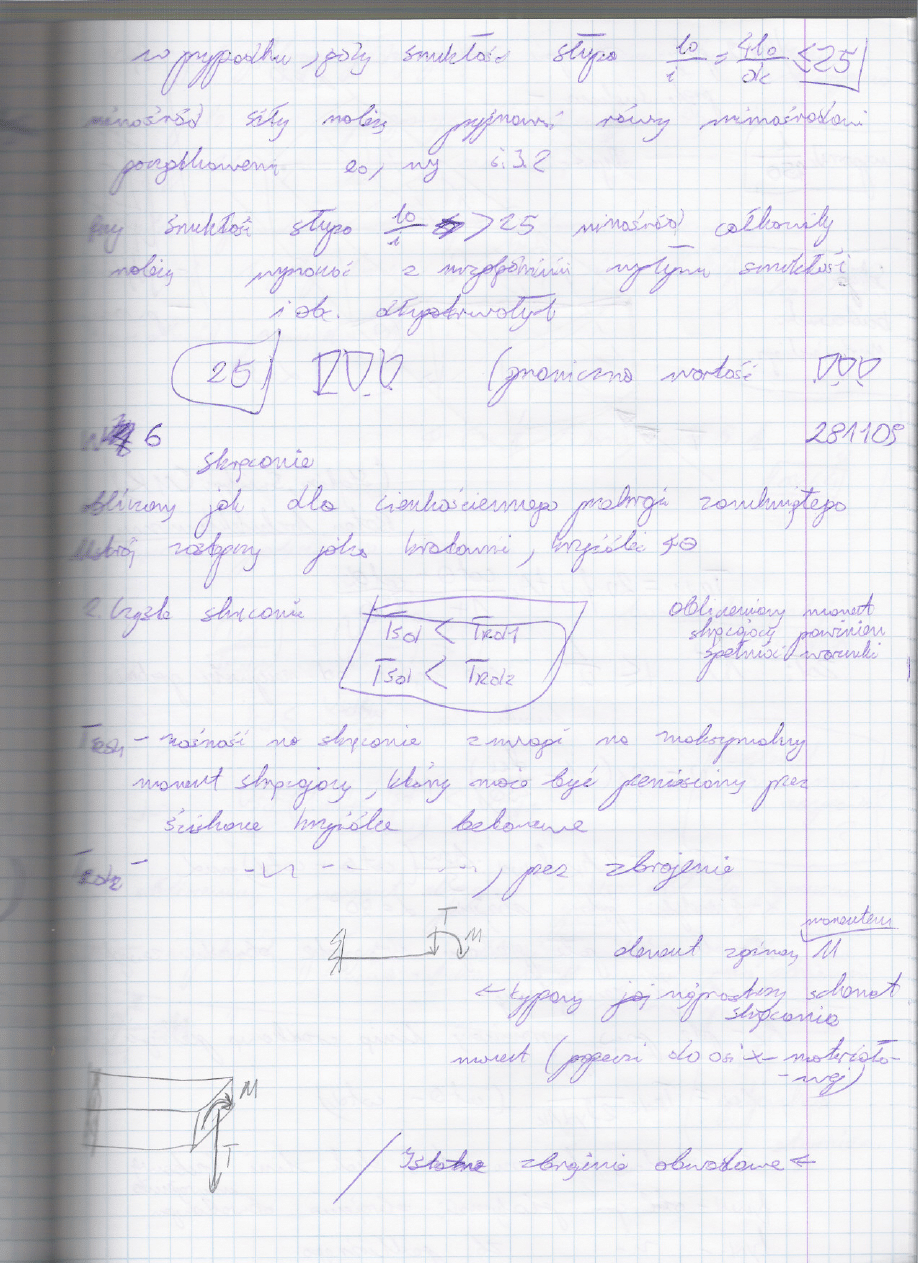 w przypadku, gdy smukłość słupa l0/i = 4l0/dk ≤25
mimośród siły należy przyjmować równy mimośrodowi
początkowemu e0, wg 6.3.2
przy smukłości słupa l0/i > 25 mimośród całkowity
należy wyznaczać z uwzględnieniem wpływu smukłości
i ob. długotrwałych
25 !!! (graniczna wartość !!!
W 6 281109
Skręcanie
obliczany jak dla cienkościennego przekroju zamkniętego
Ustrój zastępczy jako kratownica, krzyżulce
2. Czyste skręcanie
TSd < TRd1
TSd < TRd2
Obliczeniowy moment
skręcający powinien
spełniać warunki
TRd1 – nośność na skręcanie z uwagi na maksymalny
moment skręcający, który może być przeniesiony przez
ściskane krzyżulce betonowe
TRd2 – , przez zbrojenie
T
M
momentem
element zginany M
← typowy jej najprostszy schemat
skręcania
moment (poprzeczn do osi x – materiało-
-wej)
M
T
/ Istotne zbrojenie obwodowe ←